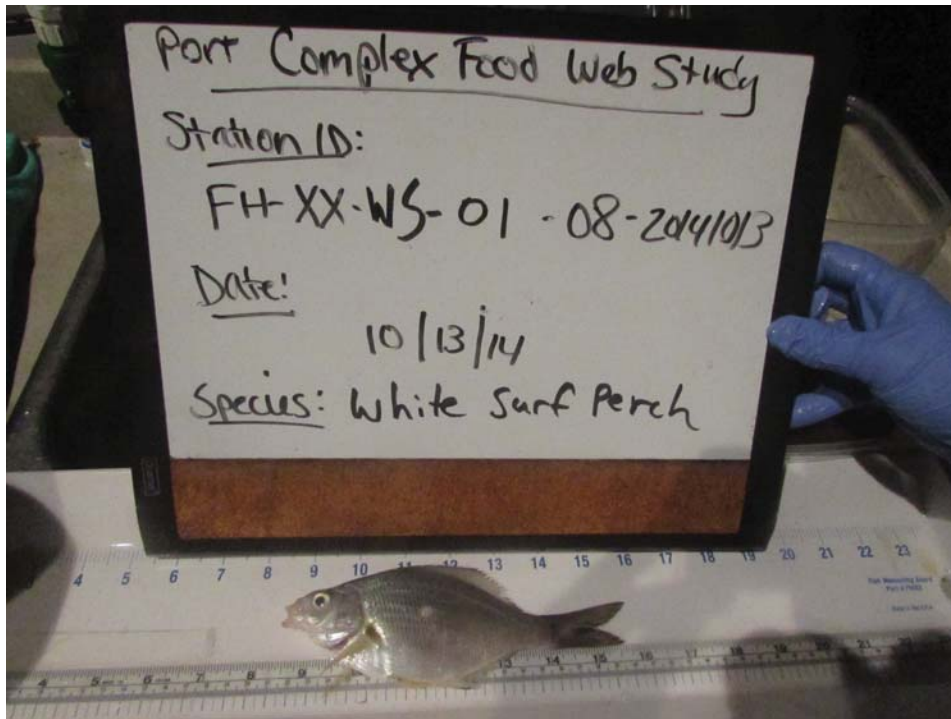 Port Complex Food Web Study
Station ID:
FH-XX-WS-01-08-20141013
Date:
10/13/14
Species: White Surf Perch
4 5 6 7 8 9 10 11 12 13 14 15 16 17 18 19 20 21 22 23
Fish Measuring Board
4 5 6 7 8 9 13 14 15 16 17 18 19 20 21 22